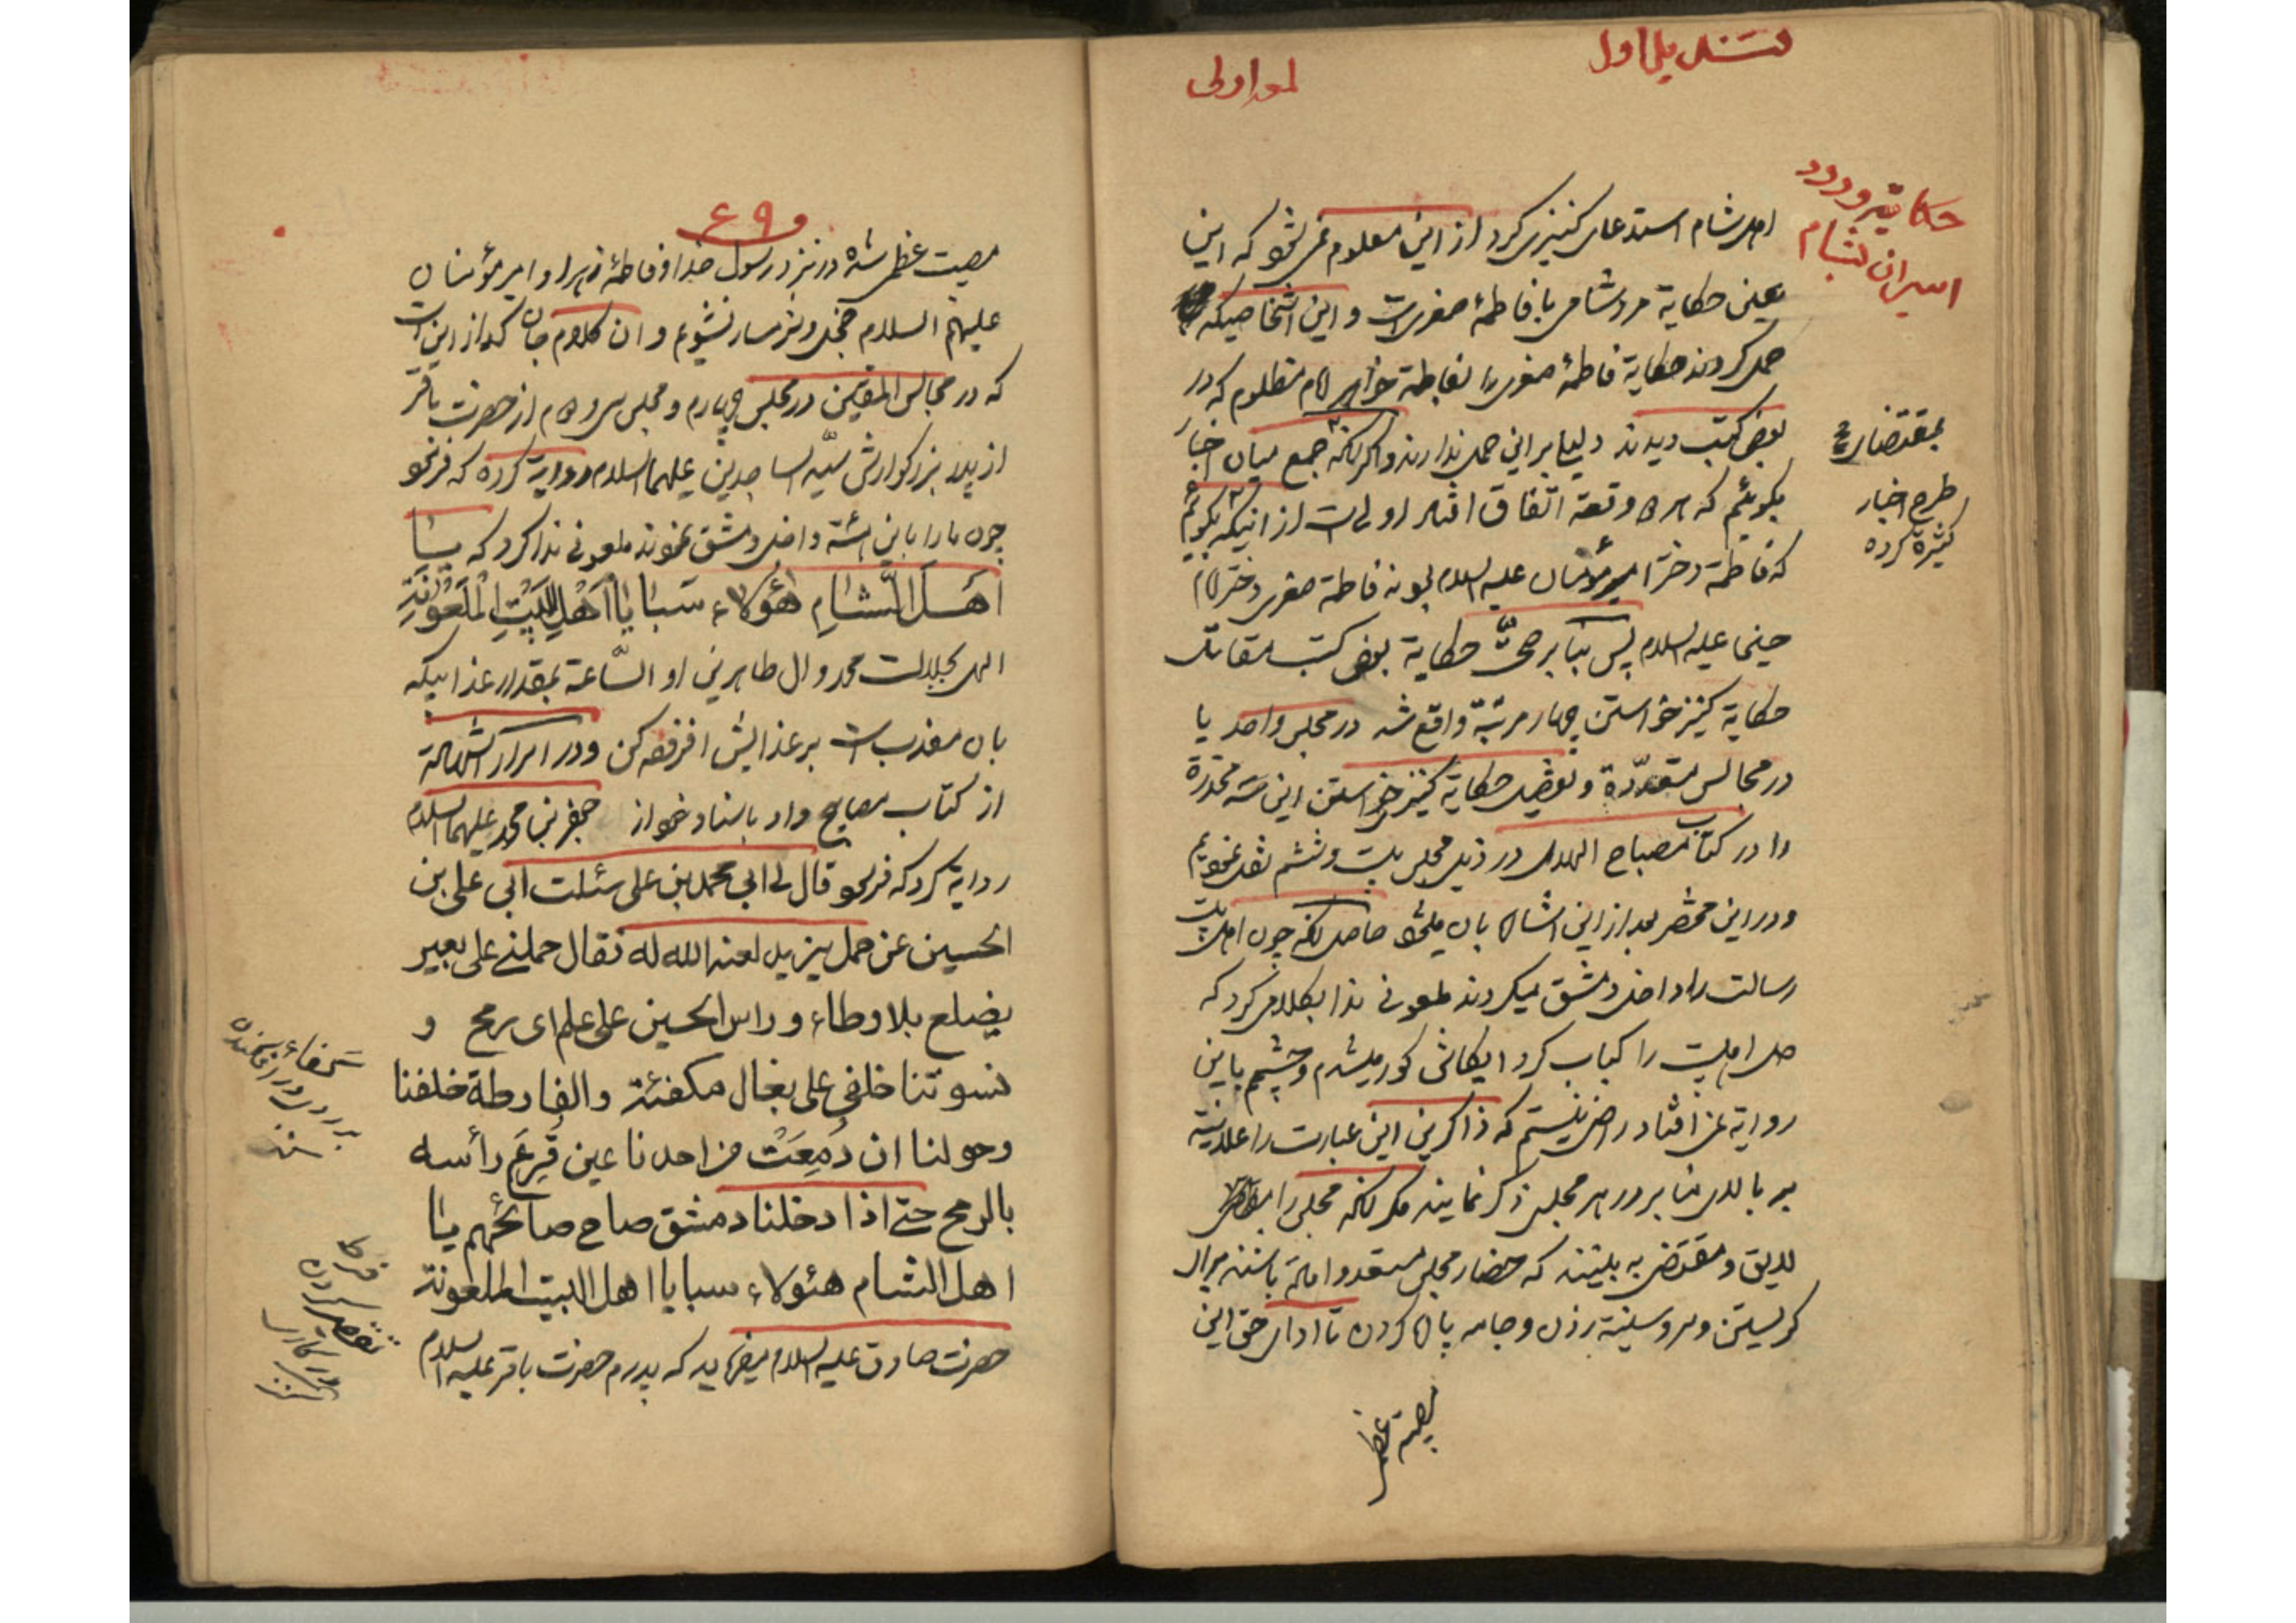 قندیل اول
لمع اولی
حکایة ورود
اسیران بشام
اهل شام استدعای کنیزی کرد از این معلوم می‌شود که این
یعنی حکایة مرد شامی با فاطمهٔ صغری است و این اشخاصیکه
حمل کردند حکایة فاطمهٔ صغری را بفاطمة خواهر امام مظلوم که در
بعض کتب دیدند دلیل بر این حمل ندارند و اگر آنکه جمع میان اخبار
بمقتضای
طرح اخبار
کثیره کرده
بگوئیم که هر دو قصه اتفاق افتاد اولی است از اینکه بگوئیم
که فاطمة دختر امیر مؤمنان علیه السلام بود نه فاطمة صغری دختر امام
حسین علیه السلام پس بنا بر صحة حکایة بعض کتب مقاتل
حکایة کنیز خواستن چهار مرتبه واقع شد در مجلس واحد یا
در مجالس متعدّدة و تفصیل حکایة کنیز خواستن این سه مخدّرة
را در کتاب مصباح الهدی در ذیل مجلس بیست و ششم نقل نمودیم
و در این مختصر بعد از این اشاره بآن میشود حاصل آنکه چون اهل بیت
رسالت را داخل دمشق میکردند ملعونی ندا بکلامی کرد که
دل اهلبیت را کباب کرد ایکاش کور میشدم و چشمم باین
روایة نمی‌افتاد راضی نیستم که ذاکرین این عبارت را علانیة
بر بالای منابر در هر مجلس ذکر نمایند مگر آنکه مجلس را
لایق و مقتضی به بینند که حضار مجلس مستعد و آماده باشند برای
گریستن و سر و سینه زدن و جامه پاره کردن تا ادای حق این
مصیبة عظمی
۶۹
مصیبت عظمی شده در نزد رسول خدا و فاطمهٔ زهرا و امیر مؤمنان
علیهم السلام خجل و شرمسار نشویم و ان کلام جان گداز این است
که در مجالس المتقین در مجلس چهارم و مجلس سی و ام از حضرت باقر
از پدر بزرگوارش سیّد الساجدین علیهما السلام روایة کرده که فرمود
چون ما را باین هیئة داخل دمشق نمودند ملعونی ندا کرد که یا
اَهْلَ الشّامِ هؤُلاء سَبایا اَهْلِ البَیْتِ الْمَلْعُونَةِ
الهی بجلالت محمد و ال طاهرین او الساعة بمقدار عذابیکه
بآن معذب است بر عذابش افزوده کن و در اسرار الشهادة
از کتاب مصابیح و او باسناد خود از جعفر بن محمد علیهما السلام
روایة کرد که فرمود قال لی ابی محمد بن علی سئلت ابی علی بن
الحسین عن حمل یزید لعنه الله له فقال حملنی علی بعیر
یضلع بلا وطاء و راس الحسین علی علم ای رمح و
نسوتنا خلفی علی بغال مکفئة والفارطة خلفنا
وحولنا ان دَمِعَتْ من احدنا عین قُرِعَ رأسه
بالرمح حتی اذا دخلنا دمشق صاح صائحُهم یا
اهل الشام هئولاء سبایا اهل البیت الملعونة
حضرت صادق علیه السلام میفرماید که پدرم حضرت باقر علیه السلام